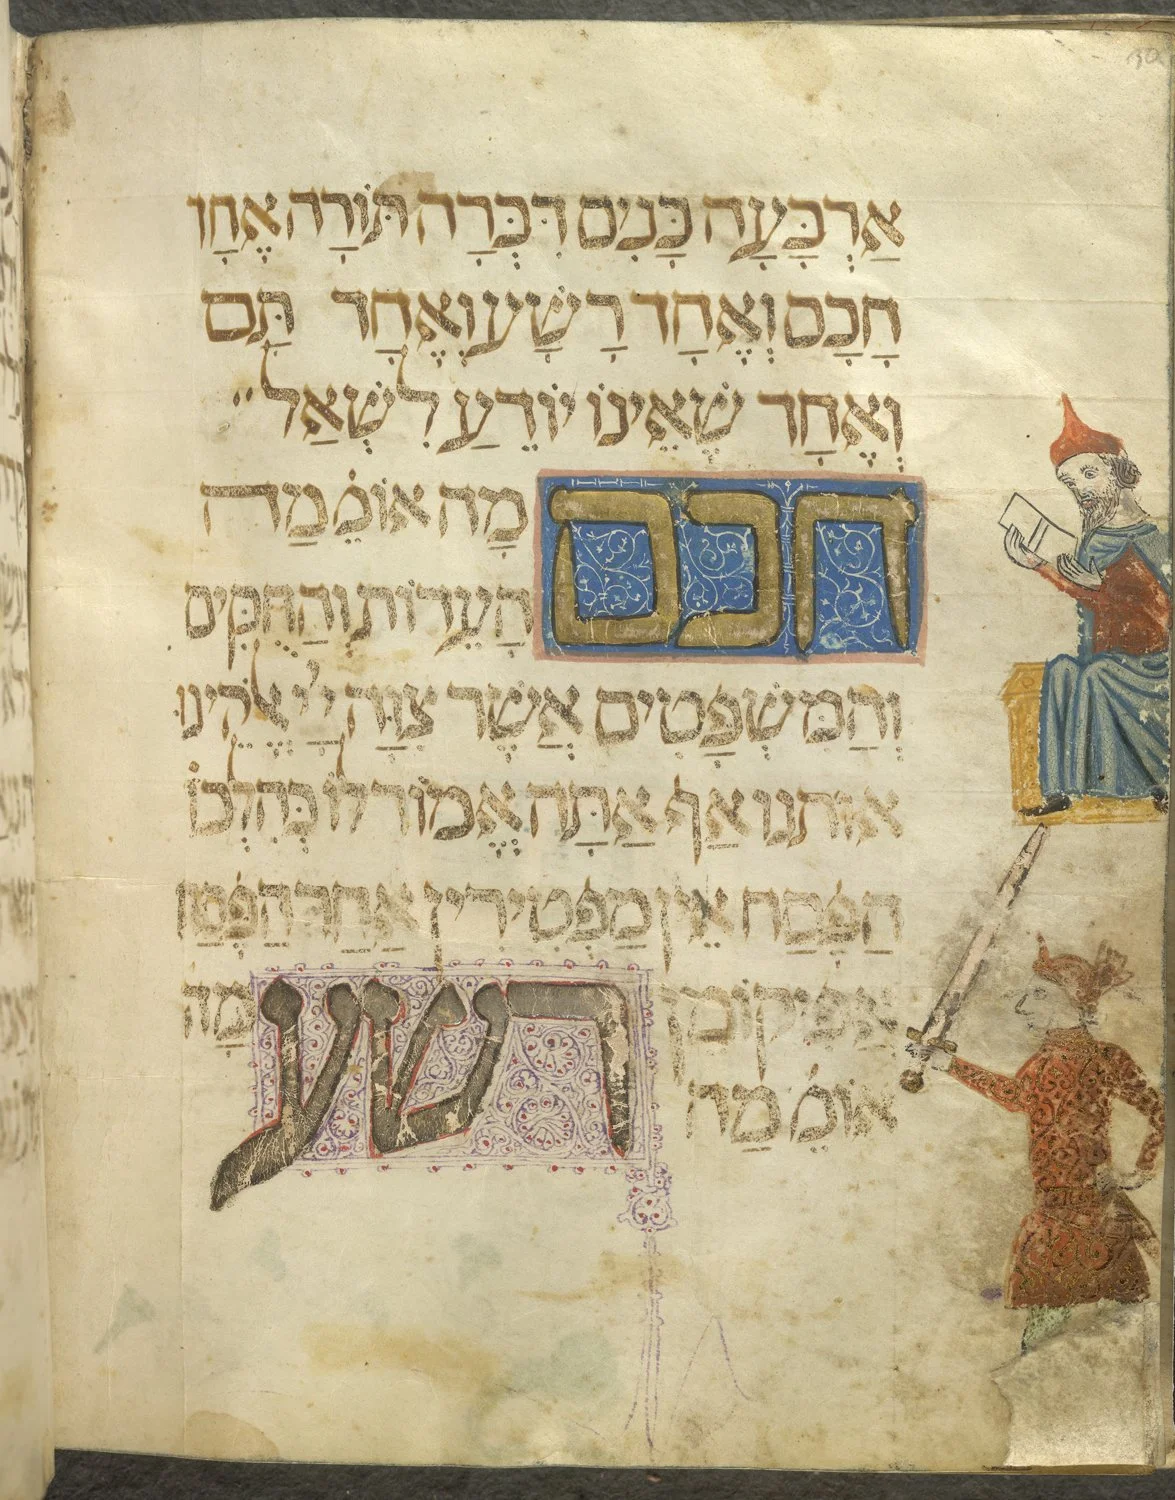 אַרְבָּעָה בָּנִים דִּבְּרָה תּוֹרָה אֶחָד
חָכָם וְאֶחָד רָשָׁע וְאֶחָד תָּם
וְאֶחָד שֶׁאֵינוֹ יוֹדֵעַ לִשְׁאַל
חכם מָה אוֹמֵ׳ מַה
הָעֵדוֹת וְהַחֻקִּים
וְהַמִּשְׁפָּטִים אֲשֶׁר צִוָּה יְיָ אֱלֹהֵינוּ
אוֹתנוּ אַף אַתָּה אֱמוֹר לוֹ כְּהִלְכוֹ
הַפֶּסַח אֵין מַפְטִירִין אַחַר
אֲפִיקוֹמָן רשע מָה
אוֹמֵ׳ מַה